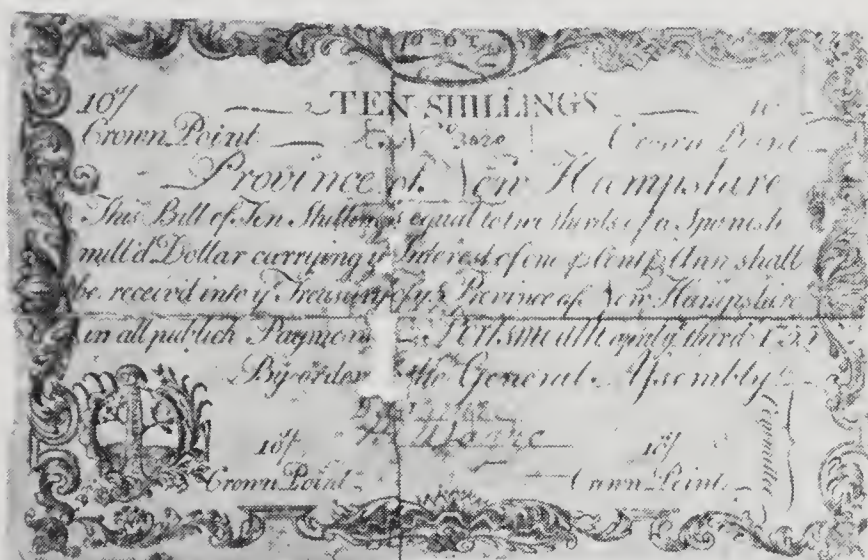 10-6
10s/ TEN SHILLINGS 10
Crown Point No 3020 Crown Point
Province of New Hampshire
This Bill of Ten Shillings equal to two thirds of a Spanish
mill'd Dollar carrying ye Interest of one p Cent p Ann shall
be receivd into ye Treasury of ye Province of New Hampshire
in all publick Payments Portsmouth april third 1755
By order of the General Assembly
10s/ 10s/
Crown Point Crown Point
Committee